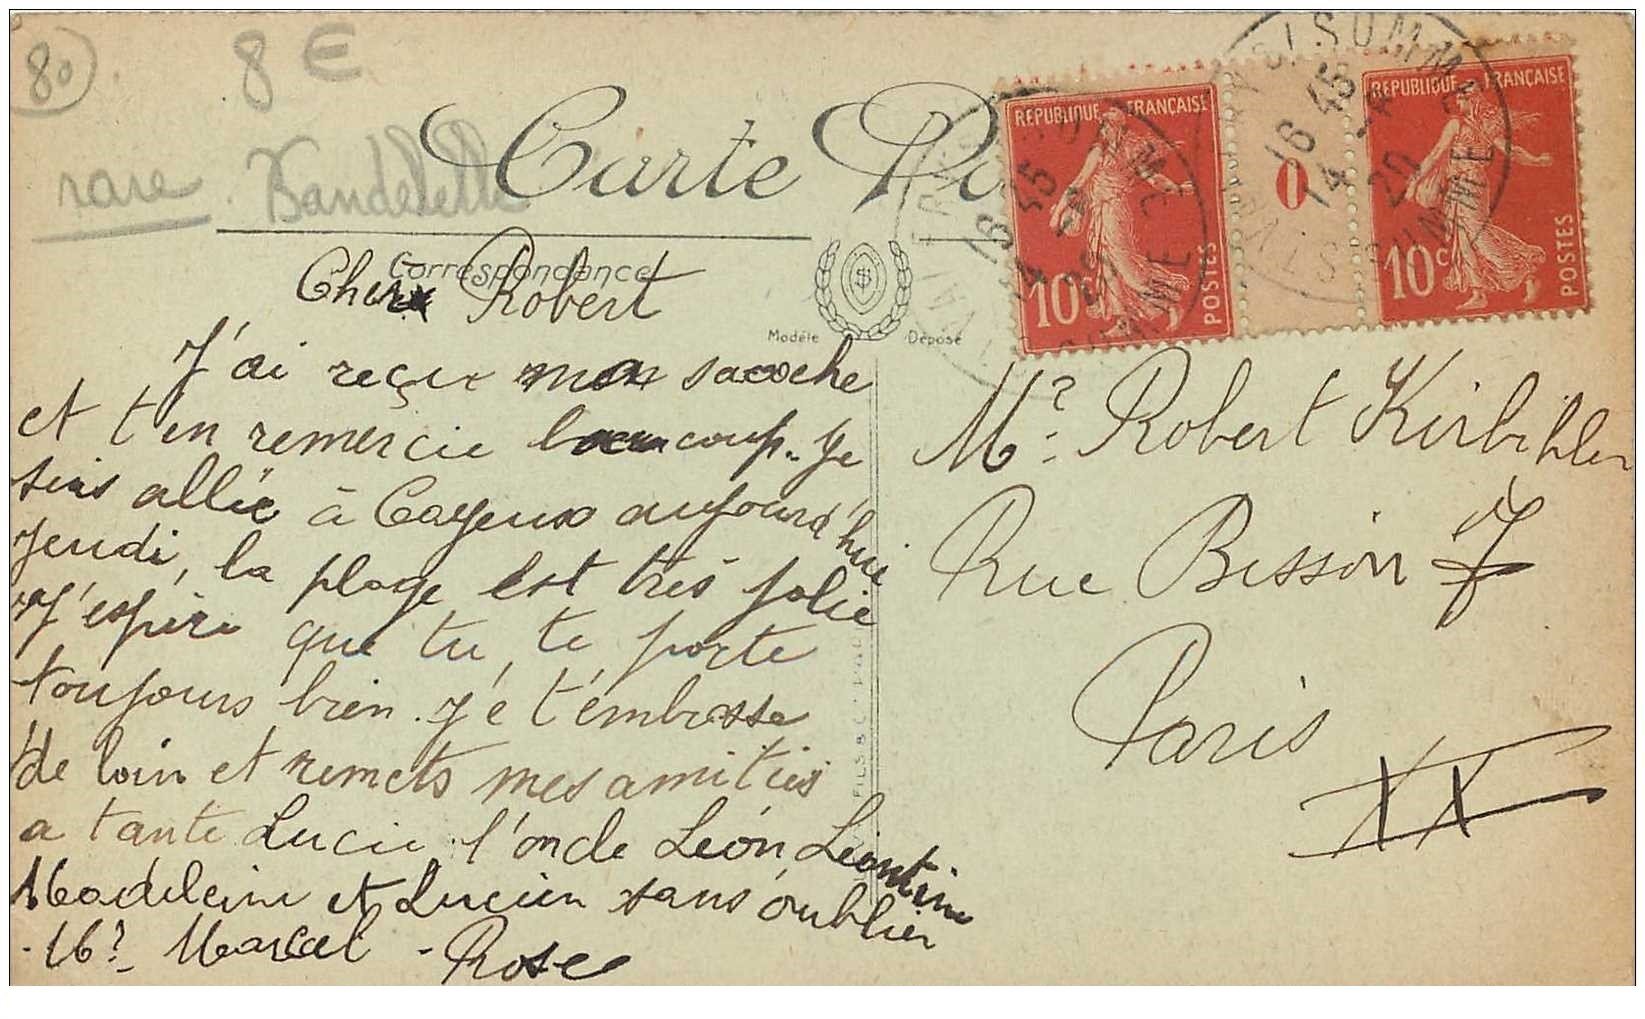 80
8 €
rare Bandelette
Carte Po
Correspondance
Modèle Déposé
REPUBLIQUE FRANÇAISE
10c POSTES
0
REPUBLIQUE FRANÇAISE
10c POSTES
16 45
14 20
SOMME
Cher Robert
J'ai reçue ma sacoche
et t'en remercie beaucoup. Je
suis allée à Cayeux aujourd'hui
Jeudi, la plage est très jolie
J'espère que tu te porte
toujours bien. Je t'embrasse
de loin et remets mes amitiés
a tante Lucie l'oncle Léon Léontine
Madeleine et Lucien sans oublier
- Mr Marcel - Rose
Mr. Robert Kirbihler
Rue Bisson 7
Paris
XX